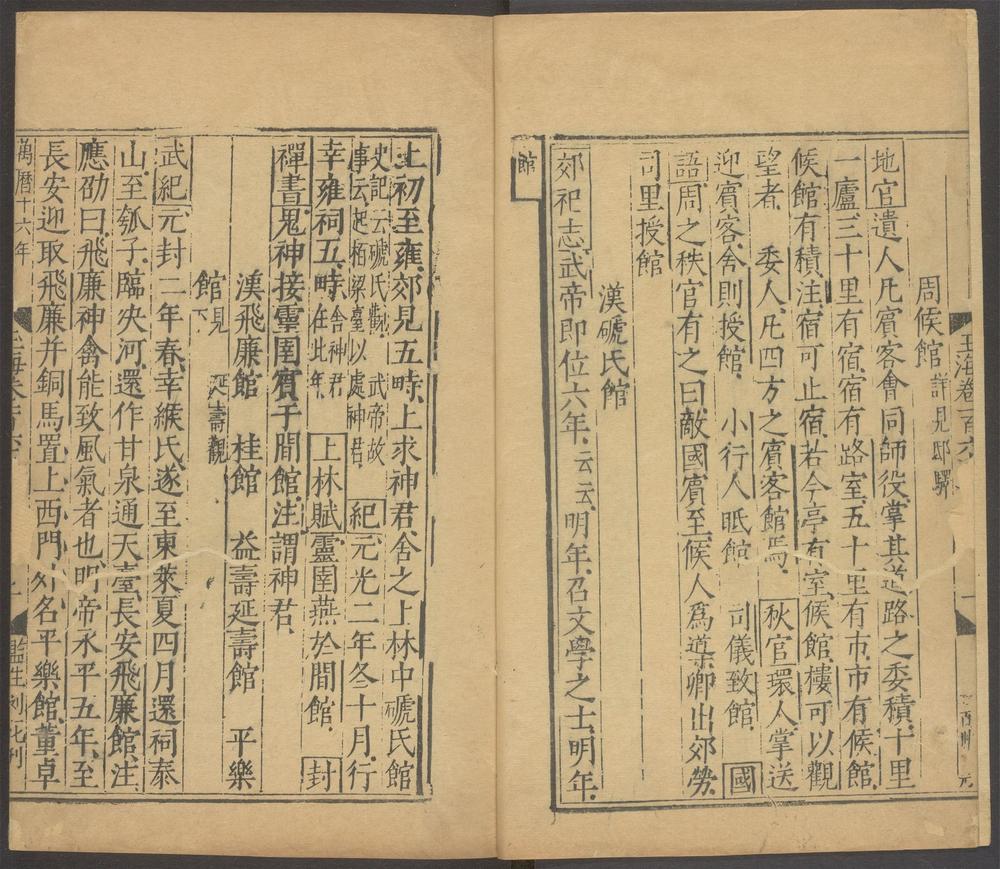 周候館 詳見邸驛
地官遺人凡賓客會同師役掌其道路之委積十里
一廬三十里有宿宿有路室五十里有市市有候館
候館有積注宿可止宿若今亭有室候館樓可以觀
望者 委人凡四方之賓客館焉 秋官環人掌送
迎賓客舍則授館 小行人眡館 司儀致館 國
語周之秩官有之曰敵國賓至候人爲導卿出郊勞
司里授館
漢磃氏館
郊祀志武帝即位六年云云明年召文學之士明年
館
上初至雍郊見五畤上求神君舍之上林中磃氏館
史記云磃氏觀 武帝故
事云起栢梁臺以處神君
紀元光二年冬十月行
幸雍祠五畤
舍神君
在此年
上林賦靈圄燕於閒館 封
禪書鬼神接靈圄賓于閒館注謂神君
漢飛廉館 桂館 益壽延壽館 平樂
館 見下 延壽觀
武紀元封二年春幸緱氏遂至東萊夏四月還祠泰
山至瓠子臨決河還作甘泉通天臺長安飛廉館注
應劭曰飛廉神禽能致風氣者也明帝永平五年至
長安迎取飛廉并銅馬置上西門外名平樂館董卓
萬曆十六年
玉海卷一百六
監生劉
刊